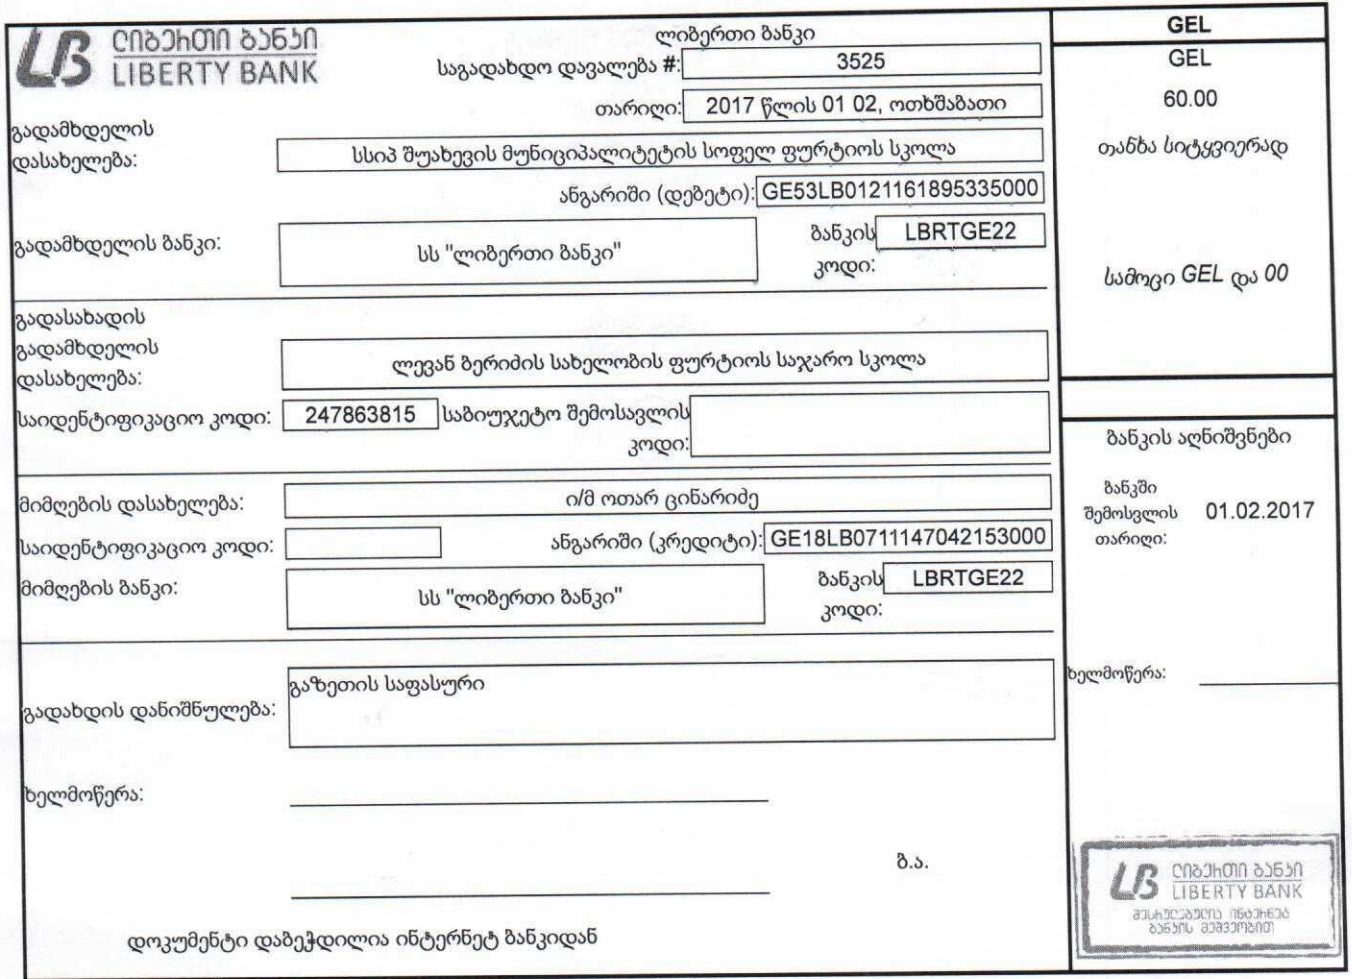 ლიბერთი ბანკი
LIBERTY BANK
ლიბერთი ბანკი
საგადახდო დავალება #: 3525
თარიღი: 2017 წლის 01 02, ოთხშაბათი
გადამხდელის
დასახელება: სსიპ შუახევის მუნიციპალიტეტის სოფელ ფურტიოს სკოლა
ანგარიში (დებეტი): GE53LB0121161895335000
გადამხდელის ბანკი: სს "ლიბერთი ბანკი" ბანკის LBRTGE22
კოდი:
გადასახადის
გადამხდელის
დასახელება: ლევან ბერიძის სახელობის ფურტიოს საჯარო სკოლა
საიდენტიფიკაციო კოდი: 247863815 საბიუჯეტო შემოსავლის
კოდი:
მიმღების დასახელება: ი/მ ოთარ ცინარიძე
საიდენტიფიკაციო კოდი: ანგარიში (კრედიტი): GE18LB0711147042153000
მიმღების ბანკი: სს "ლიბერთი ბანკი" ბანკის LBRTGE22
კოდი:
გადახდის დანიშნულება: გაზეთის საფასური
ხელმოწერა:
ბ.ა.
დოკუმენტი დაბეჭდილია ინტერნეტ ბანკიდან
GEL
GEL
60.00
თანხა სიტყვიერად
სამოცი GEL და 00
ბანკის აღნიშვნები
ბანკში
შემოსვლის 01.02.2017
თარიღი:
ხელმოწერა:
ლიბერთი ბანკი
LIBERTY BANK
შესრულებულია ინტერნეტ
ბანკის მეშვეობით